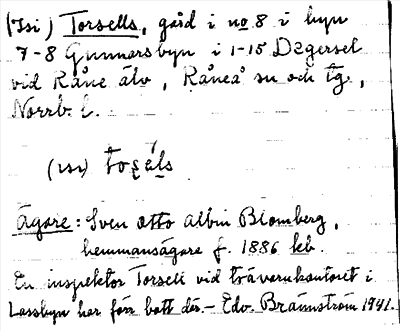 (Isi) Torsells, gård i no 8 i byn
7-8 Gunnarsbyn i 1-15 Degersel
vid Råne älv, Råneå sn och tg,
Norrb. l.
(isi)
Ägare: Sven Otto Albin Blomberg,
hemmansägare f. 1886 
En inspektor Torsell vid trävarukontoret i
Lassbyn har förr bott där. — Edv. Brännström 1941.